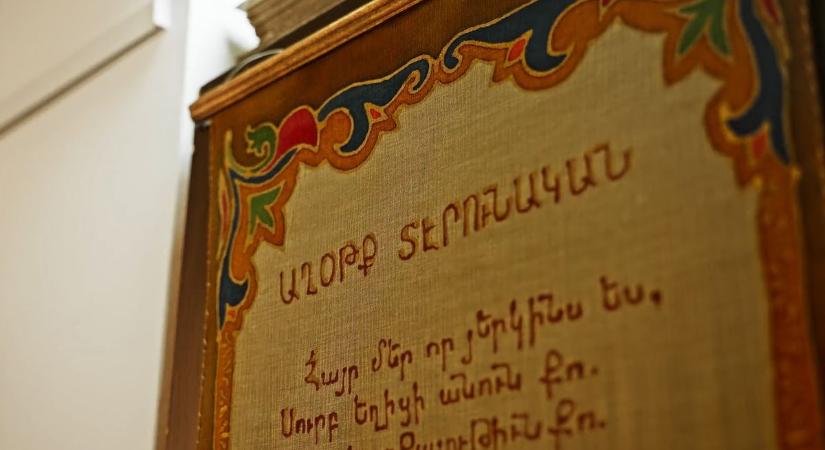 ԱՂՕԹՔ ՏԷՐՈՒՆԱԿԱՆ
Հայր մեր որ յերկինս ես,
Սուրբ եղիցի անուն քո.
քո.